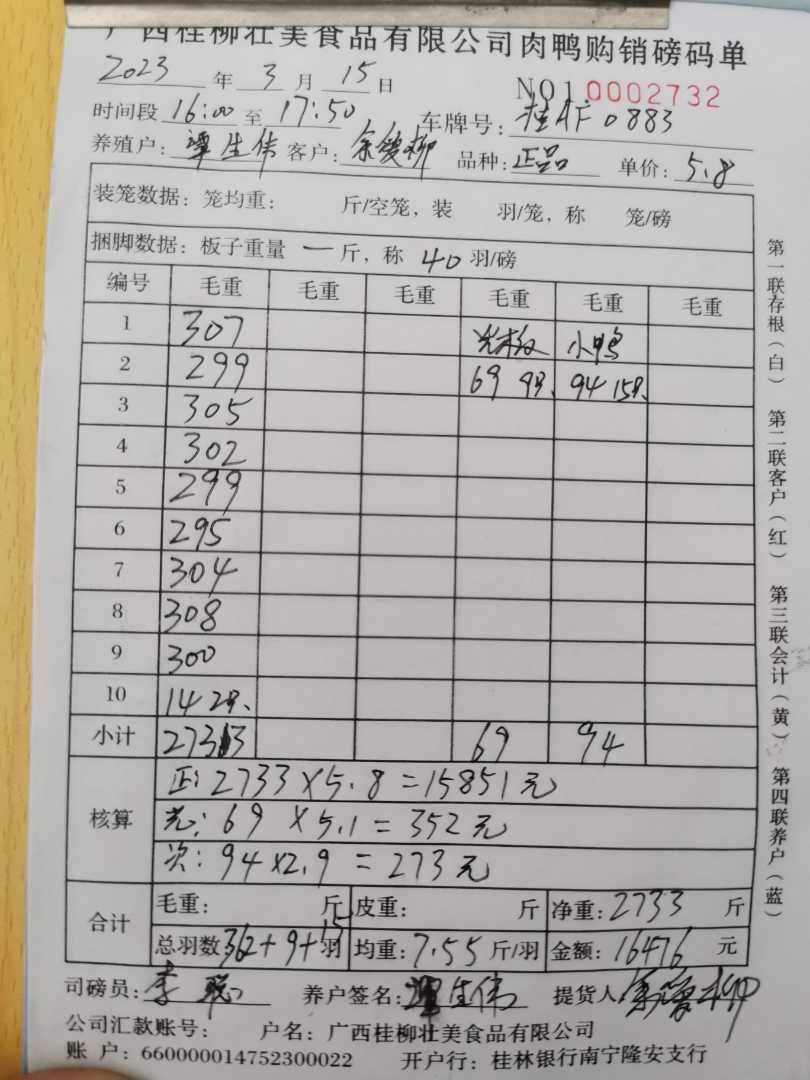 广西桂柳壮美食品有限公司肉鸭购销磅码单
2023 年 3 月 15 日 NO1 0002732
时间段 16:00 至 17:50 车牌号: 桂AF0883
养殖户: 覃生伟 客户: 品种: 正品 单价: 5.8
装笼数据: 笼均重: 斤/空笼, 装 羽/笼, 称 笼/磅
捆脚数据: 板子重量 一 斤, 称 40 羽/磅
编号 毛重 毛重 毛重 毛重 毛重 毛重
1 307 小鸭
2 299 69 9只 94 15只
3 305
4 302
5 299
6 295
7 304
8 308
9 300
10 14 2只
小计 2733 69 94
核算
正: 2733×5.8=15851元
光: 69×5.1=352元
次: 94×2.9=273元
合计
毛重: 斤 皮重: 斤 净重: 2733 斤
总羽数 362+9+15 羽 均重: 7.55 斤/羽 金额: 16476 元
司磅员: 李聪 养户签名: 覃生伟 提货人
公司汇款账号: 户名: 广西桂柳壮美食品有限公司
账 户: 660000014752300022 开户行: 桂林银行南宁隆安支行
第一联存根(白) 第二联客户(红) 第三联会计(黄) 第四联养户(蓝)